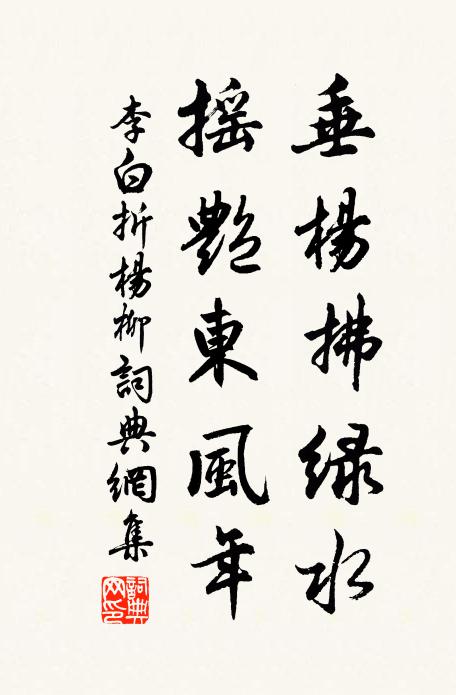 垂楊拂綠水
搖艷東風年
李白折楊柳詞典網集
詞典網印